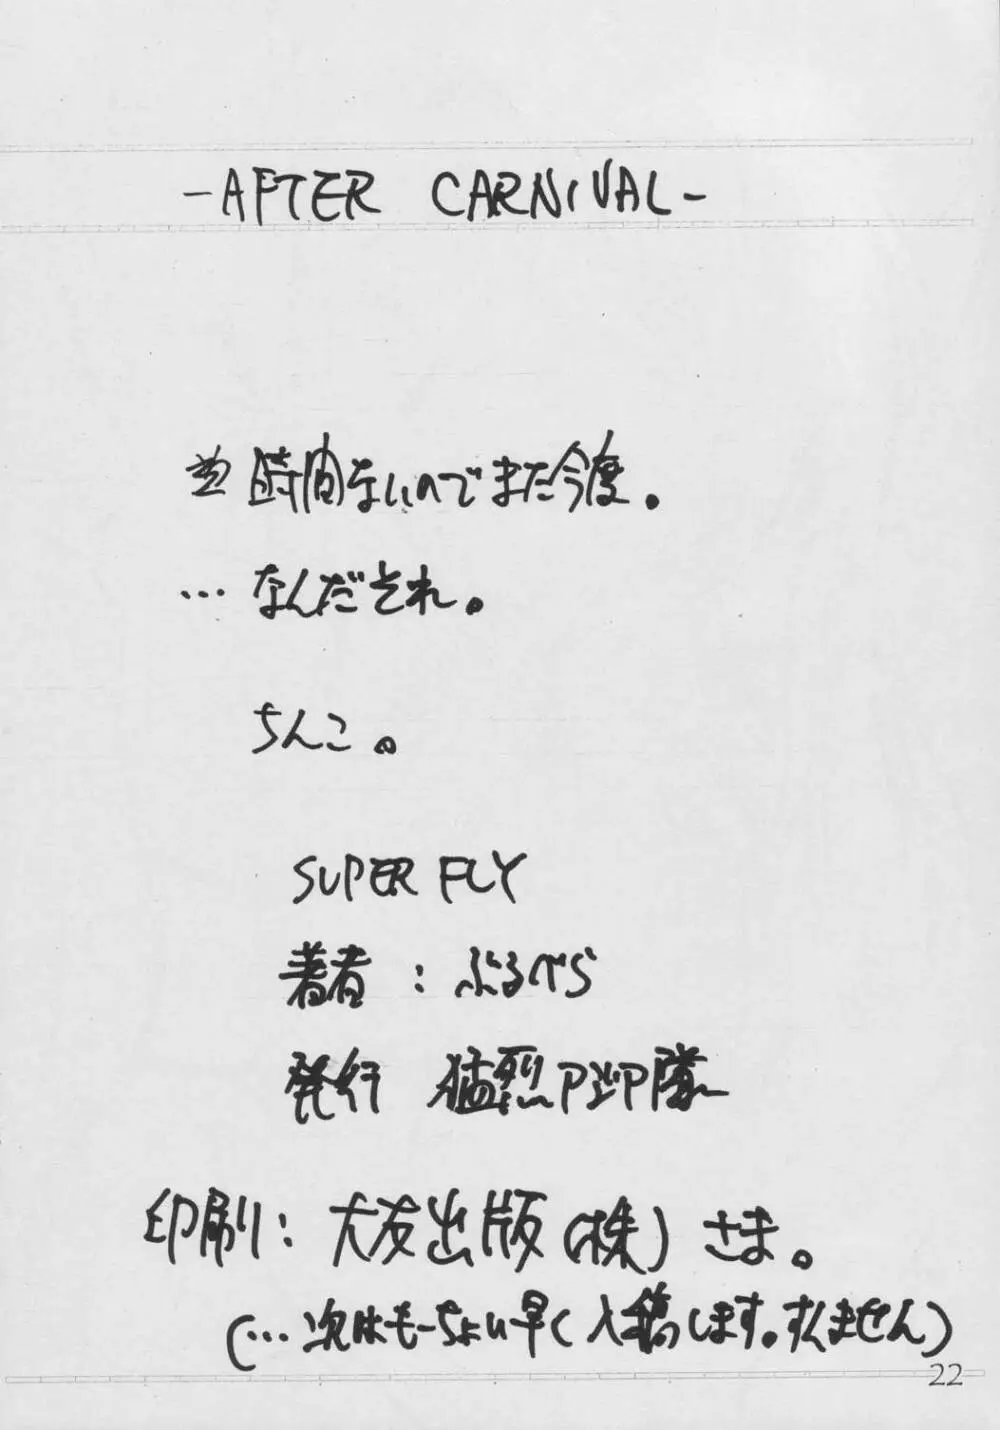 -AFTER CARNIVAL-
時間ないのでまた今度。
…なんだそれ。
ちんこ。
SUPER FLY
著者:ぶるべら
発行 猛烈PिP隊
印刷:大友出版(株)さま。
(…次はもーちょい早く入稿します。すんません)
22